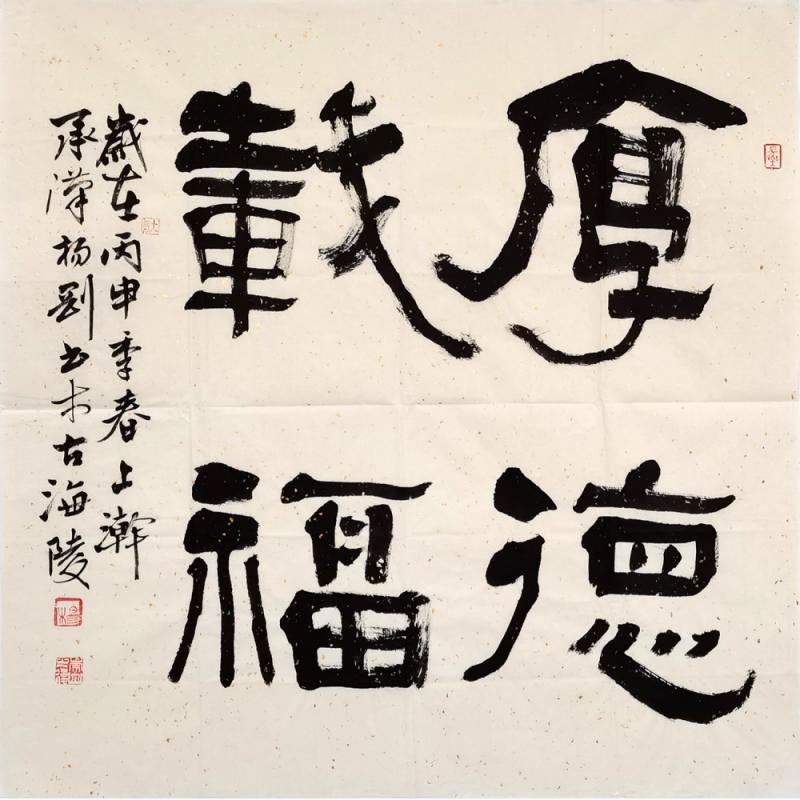 厚德
載福
歲在丙申季春上澣
承漢楊剛書於古海陵